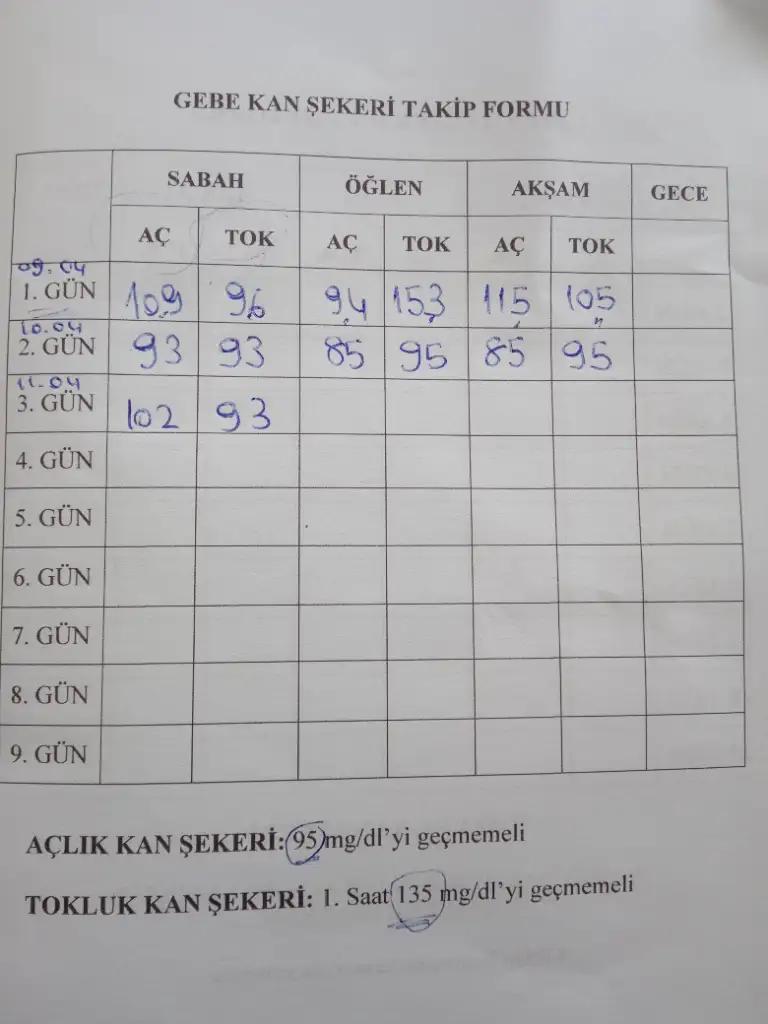 GEBE KAN ŞEKERİ TAKİP FORMU
SABAH ÖĞLEN AKŞAM GECE
AÇ TOK AÇ TOK AÇ TOK
09.04
1. GÜN 109 96 94 153 115 105
10.04
2. GÜN 93 93 85 95 85 95
11.04
3. GÜN 102 93
4. GÜN
5. GÜN
6. GÜN
7. GÜN
8. GÜN
9. GÜN
AÇLIK KAN ŞEKERİ: 95 mg/dl'yi geçmemeli
TOKLUK KAN ŞEKERİ: 1. Saat 135 mg/dl'yi geçmemeli